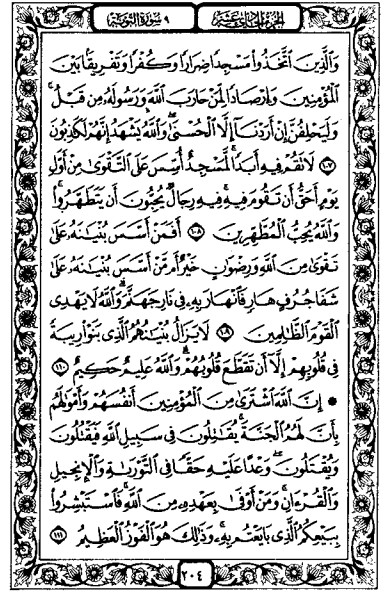 الجزء الحادي عشر ٩ سورة التوبة
وَٱلَّذِينَ ٱتَّخَذُوا۟ مَسْجِدًا ضِرَارًا وَكُفْرًا وَتَفْرِيقًۢا بَيْنَ
ٱلْمُؤْمِنِينَ وَإِرْصَادًا لِّمَنْ حَارَبَ ٱللَّهَ وَرَسُولَهُۥ مِن قَبْلُ ۚ
وَلَيَحْلِفُنَّ إِنْ أَرَدْنَآ إِلَّا ٱلْحُسْنَىٰ ۖ وَٱللَّهُ يَشْهَدُ إِنَّهُمْ لَكَٰذِبُونَ
١٠٧ لَا تَقُمْ فِيهِ أَبَدًا ۚ لَّمَسْجِدٌ أُسِّسَ عَلَى ٱلتَّقْوَىٰ مِنْ أَوَّلِ
يَوْمٍ أَحَقُّ أَن تَقُومَ فِيهِ ۚ فِيهِ رِجَالٌ يُحِبُّونَ أَن يَتَطَهَّرُوا۟ ۚ
وَٱللَّهُ يُحِبُّ ٱلْمُطَّهِّرِينَ ١٠٨ أَفَمَنْ أَسَّسَ بُنْيَٰنَهُۥ عَلَىٰ
تَقْوَىٰ مِنَ ٱللَّهِ وَرِضْوَٰنٍ خَيْرٌ أَم مَّنْ أَسَّسَ بُنْيَٰنَهُۥ عَلَىٰ
شَفَا جُرُفٍ هَارٍ فَٱنْهَارَ بِهِۦ فِى نَارِ جَهَنَّمَ ۗ وَٱللَّهُ لَا يَهْدِى
ٱلْقَوْمَ ٱلظَّٰلِمِينَ ١٠٩ لَا يَزَالُ بُنْيَٰنُهُمُ ٱلَّذِى بَنَوْا۟ رِيبَةً
فِى قُلُوبِهِمْ إِلَّآ أَن تَقَطَّعَ قُلُوبُهُمْ ۗ وَٱللَّهُ عَلِيمٌ حَكِيمٌ ١١٠
۞ إِنَّ ٱللَّهَ ٱشْتَرَىٰ مِنَ ٱلْمُؤْمِنِينَ أَنفُسَهُمْ وَأَمْوَٰلَهُم
بِأَنَّ لَهُمُ ٱلْجَنَّةَ ۚ يُقَٰتِلُونَ فِى سَبِيلِ ٱللَّهِ فَيَقْتُلُونَ
وَيُقْتَلُونَ ۖ وَعْدًا عَلَيْهِ حَقًّا فِى ٱلتَّوْرَىٰةِ وَٱلْإِنجِيلِ
وَٱلْقُرْءَانِ ۚ وَمَنْ أَوْفَىٰ بِعَهْدِهِۦ مِنَ ٱللَّهِ ۚ فَٱسْتَبْشِرُوا۟
بِبَيْعِكُمُ ٱلَّذِى بَايَعْتُم بِهِۦ ۚ وَذَٰلِكَ هُوَ ٱلْفَوْزُ ٱلْعَظِيمُ ١١١
٢٠٤